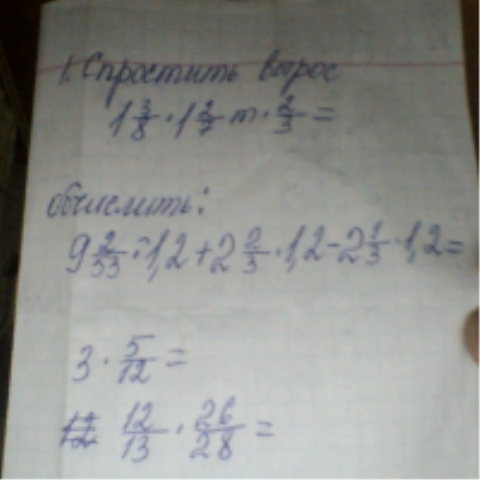 1. Спростить вырос
1 3/8 · 1 2/7 m · 2/3 =
обчислить:
9 2/33 : 1,2 + 2 2/3 · 1,2 - 2 1/3 · 1,2 =
3 · 5/12 =
12/13 · 26/28 =